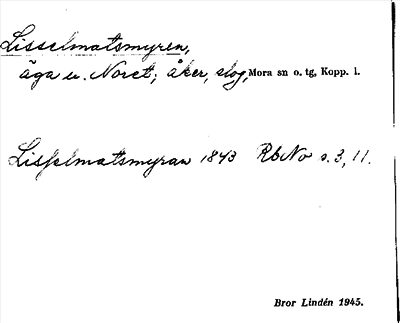 Lisselmatsmyren,
äga u. Noret; åker, slog, Mora sn o. tg, Kopp. l.
Lisselmatsmyran 1843 RbNo s. 3, 11.
Bror Lindén 1945.